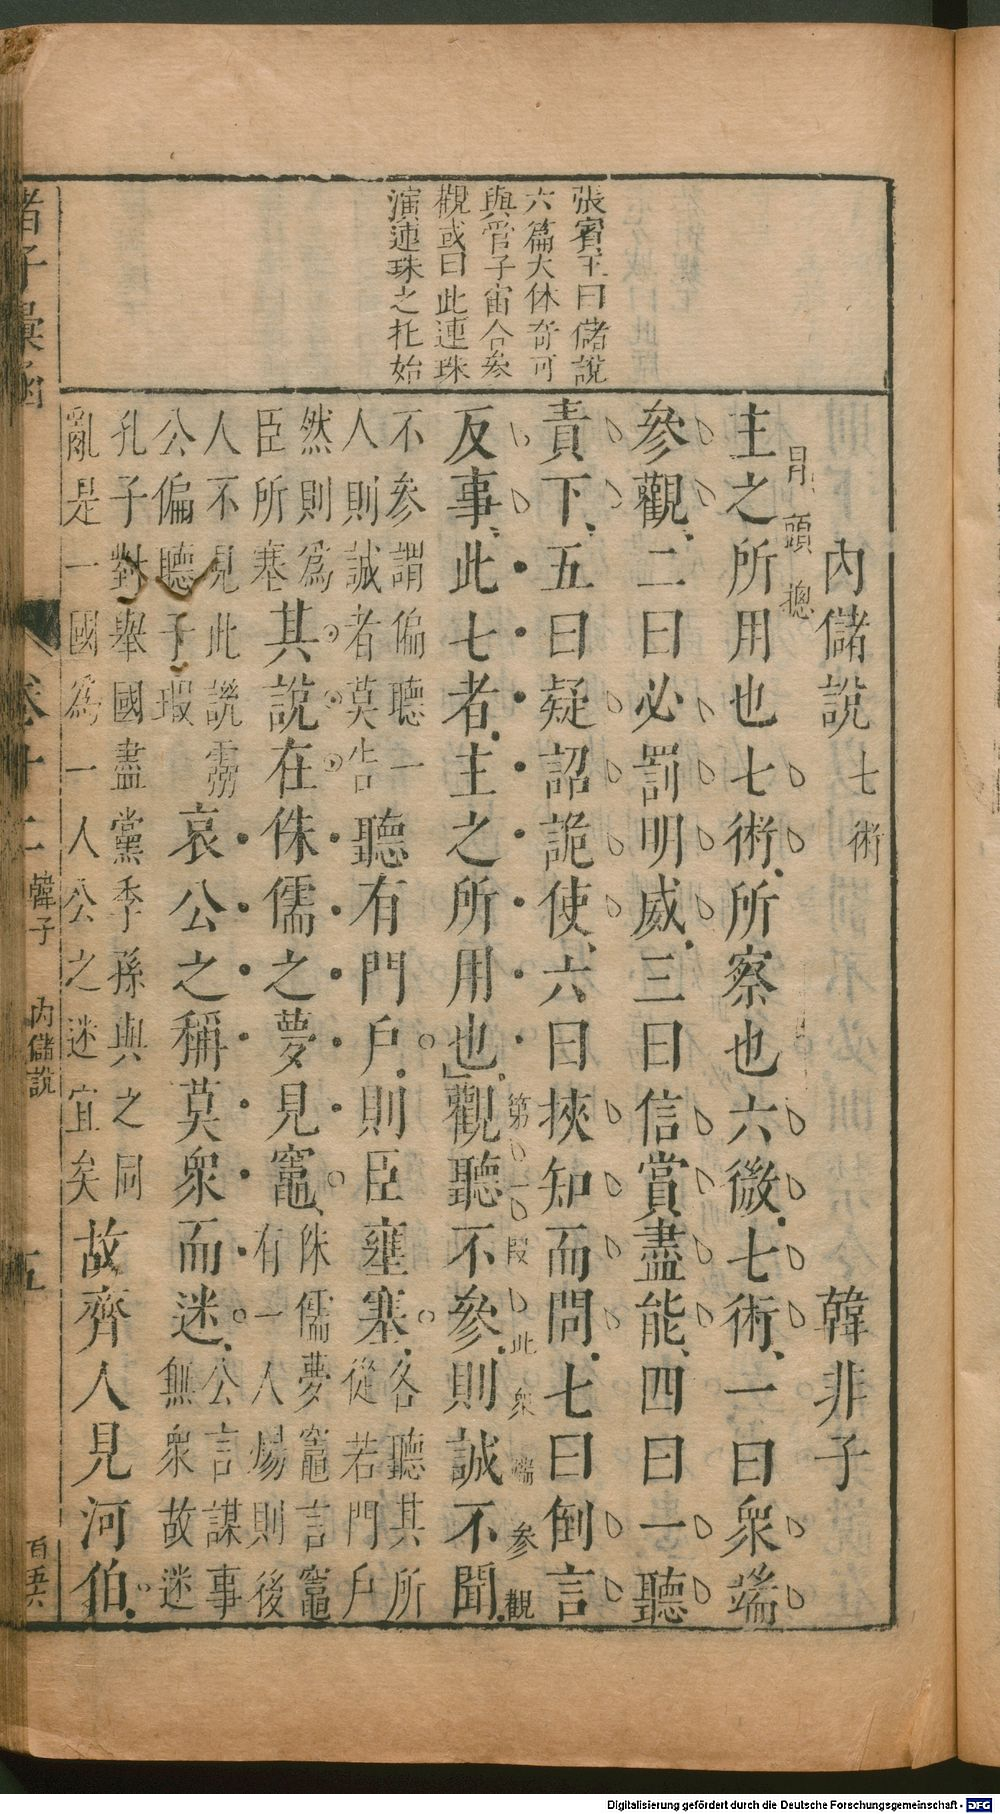 張賓王曰儲說
六篇大体奇可
與管子宙合參
觀或曰此連珠
演連珠之托始
內儲說七術 韓非子
冒頭摠
主之所用也七術所察也六微七術一曰衆端
參觀二曰必罰明威三曰信賞盡能四曰一聽
責下五曰疑詔詭使六曰挾知而問七曰倒言
第一段此衆端參觀
反事此七者主之所用也觀聽不參則誠不聞
不參謂偏聽一
人則誠者莫告
聽有門戶則臣壅塞
各聽其所
從若門戶
然則爲
臣所塞
其說在侏儒之夢見竈
侏儒夢竈言竈
有一人煬則後
人不見此譏靈
公偏聽子瑕
哀公之稱莫衆而迷
公言謀事
無衆故迷
孔子對舉國盡黨季孫與之同
亂是一國爲一人公之迷宜矣
故齊人見河伯
諸子彙函
卷十二 韓子 內儲說 五 百五六
Digitalisierung gefördert durch die Deutsche Forschungsgemeinschaft - DFG